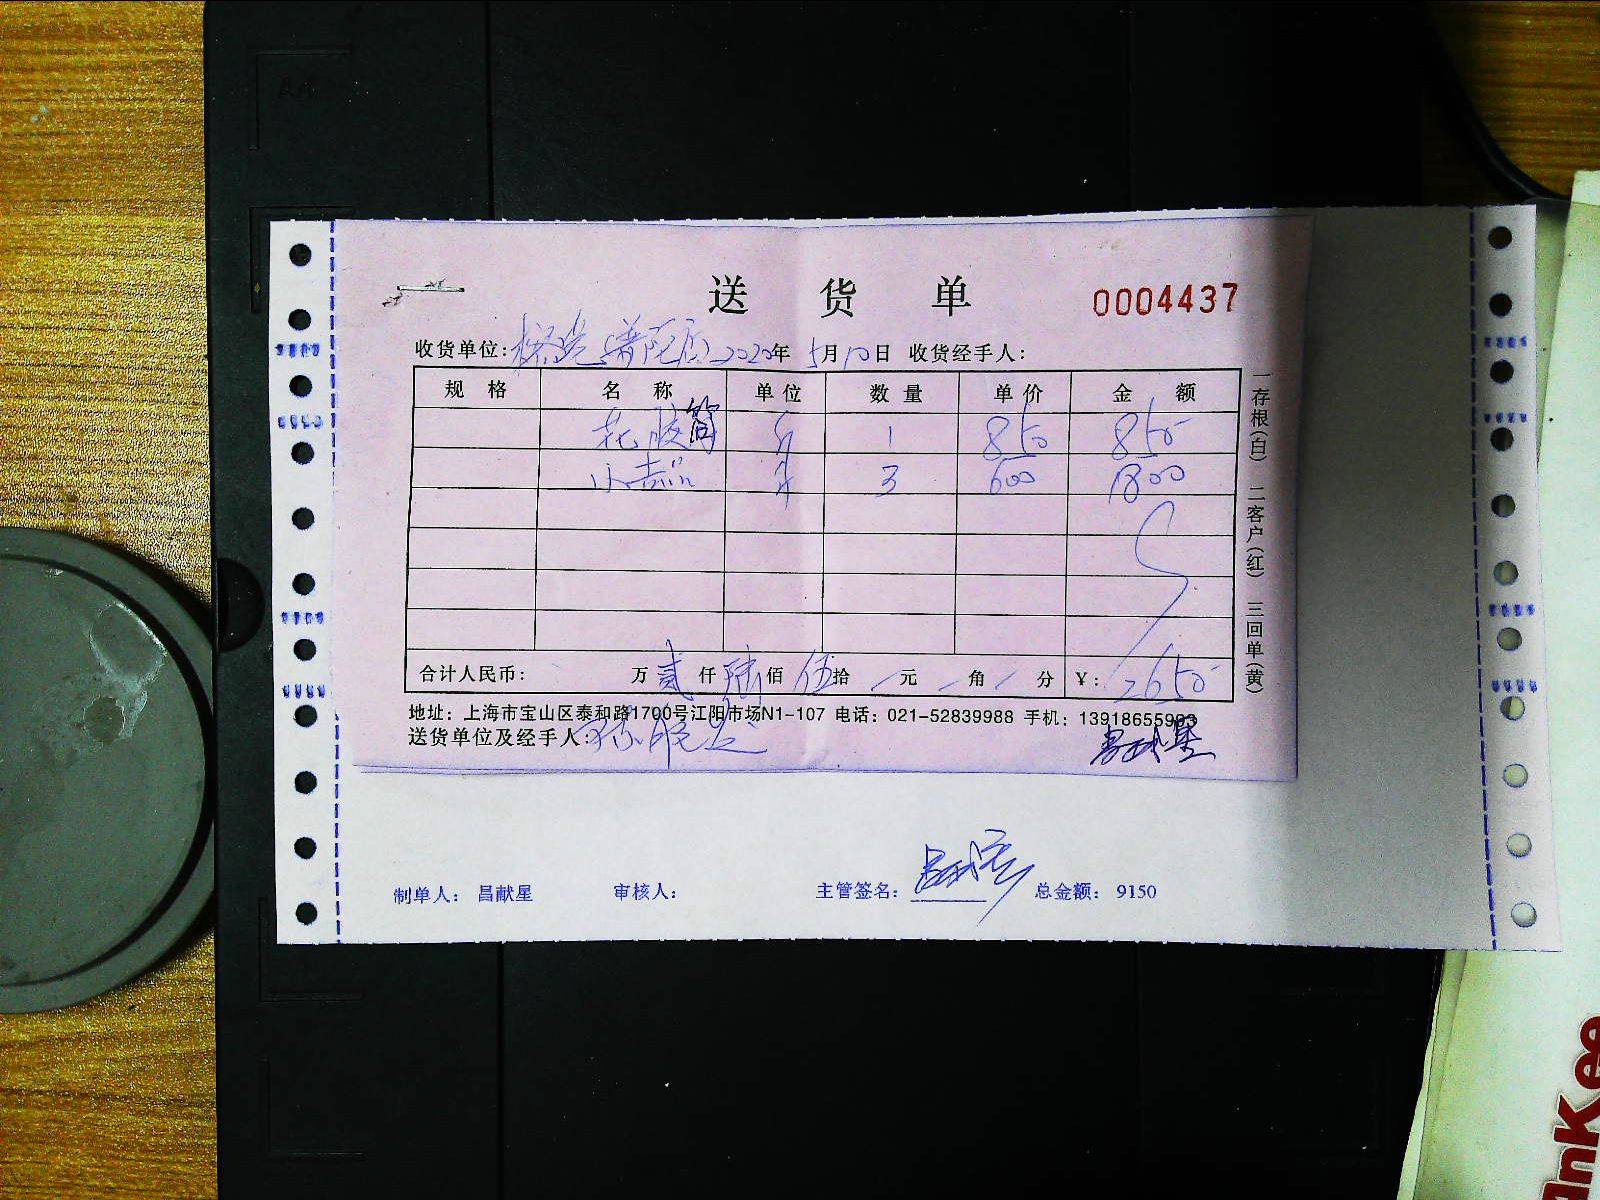 送 货 单 0004437
收货单位: 普陀店 2020年 5月10日 收货经手人:
规 格 名 称 单位 数量 单价 金 额
花胶筒 斤 1 850 850
小 斤 3 600 1800
合计人民币: 万 贰 仟 陆 佰 伍 拾 元 角 分 ¥: 2650
地址: 上海市宝山区泰和路1700号江阳市场N1-107 电话: 021-52839988 手机: 13918655993
送货单位及经手人:
一存根(白) 二客户(红) 三回单(黄)
制单人: 昌献星 审核人: 主管签名: 总金额: 9150
AnKee